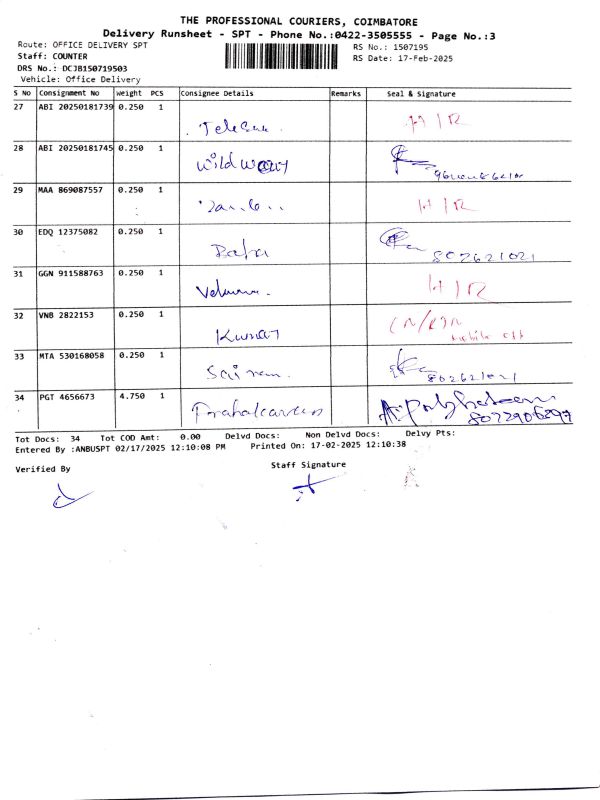 THE PROFESSIONAL COURIERS, COIMBATORE
Delivery Runsheet - SPT - Phone No.:0422-3505555 - Page No.:3
Route: OFFICE DELIVERY SPT RS No.: 1507195
Staff: COUNTER RS Date: 17-Feb-2025
DRS No.: DCJB150719503
Vehicle: Office Delivery
S No Consignment No Weight PCS Consignee Details Remarks Seal & Signature
27 ABI 20250181739 0.250 1
H/R
28 ABI 20250181745 0.250 1
Wildway
29 MAA 869087557 0.250 1
H/R
30 EDQ 12375082 0.250 1
Babu
802621021
31 GGN 911588763 0.250 1
H/R
32 VNB 2822153 0.250 1
Kumar
mobile off
33 MTA 530168058 0.250 1
Sairam.
34 PGT 4656673 4.750 1
Tot Docs: 34 Tot COD Amt: 0.00 Delvd Docs: Non Delvd Docs: Delvy Pts:
Entered By :ANBUSPT 02/17/2025 12:10:08 PM Printed On: 17-02-2025 12:10:38
Verified By Staff Signature